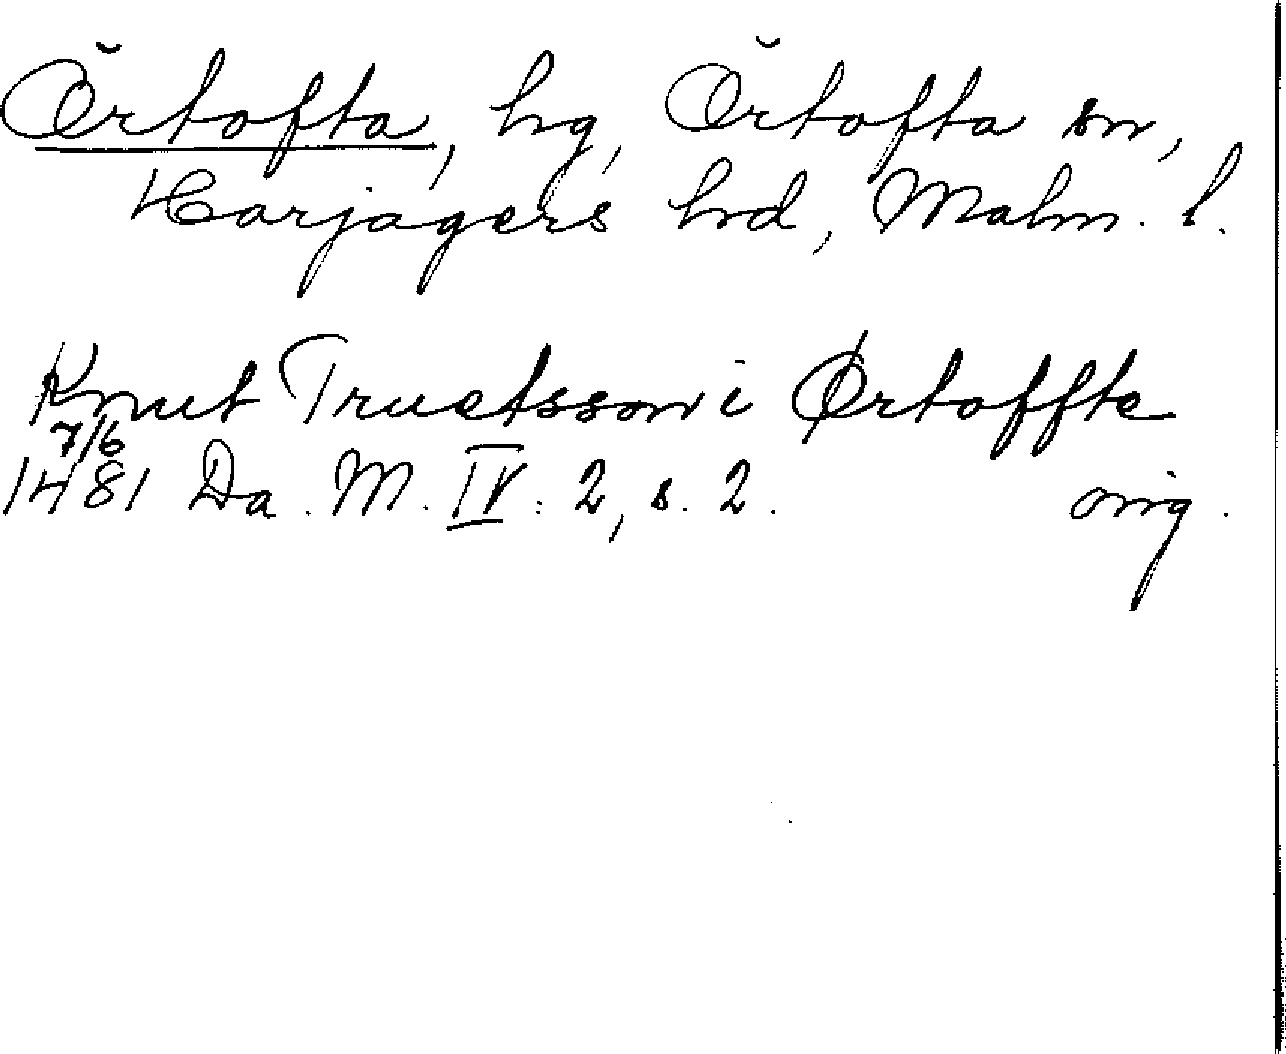 Örtofta, hg, Örtofta sn,
Harjagers hrd, Malm. l.
Knut Truetsson i Ørtoffte
7/6
1481 Da. M. IV: 2, s. 2. orig.